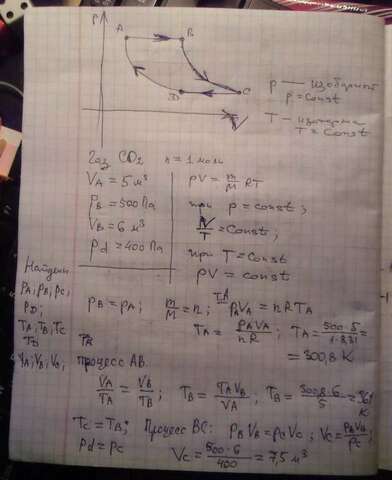 P
A
B
D
C
V
P — изобарный
p = const
T — изотерма
T = Const
Газ CO₂ n = 1 моль
V_A = 5 м³
P_B = 500 Па
V_B = 6 м³
P_d = 400 Па
pV = m/M RT
при p = const;
V/T = Const;
при T = Const
pV = const
Найти
P_A; P_B; P_C,
P_D;
T_A; T_B; T_C
T_D
V_A; V_B; V_D,
P_B = P_A; m/M = n; P_A V_A = n R T_A
T_A = P_A V_A / nR ; T_A = 500·5 / 1·8,31 =
= 300,8 K
процесс AB.
V_A/T_A = V_B/T_B ; T_B = T_A V_B / V_A ; T_B = 300,8·6 / 5 = 361 K
T_C = T_B; Процесс BC: P_B V_B = P_C V_C ; V_C = P_B V_B / P_C ;
P_d = P_C
V_C = 500·6 / 400 = 7,5 м³